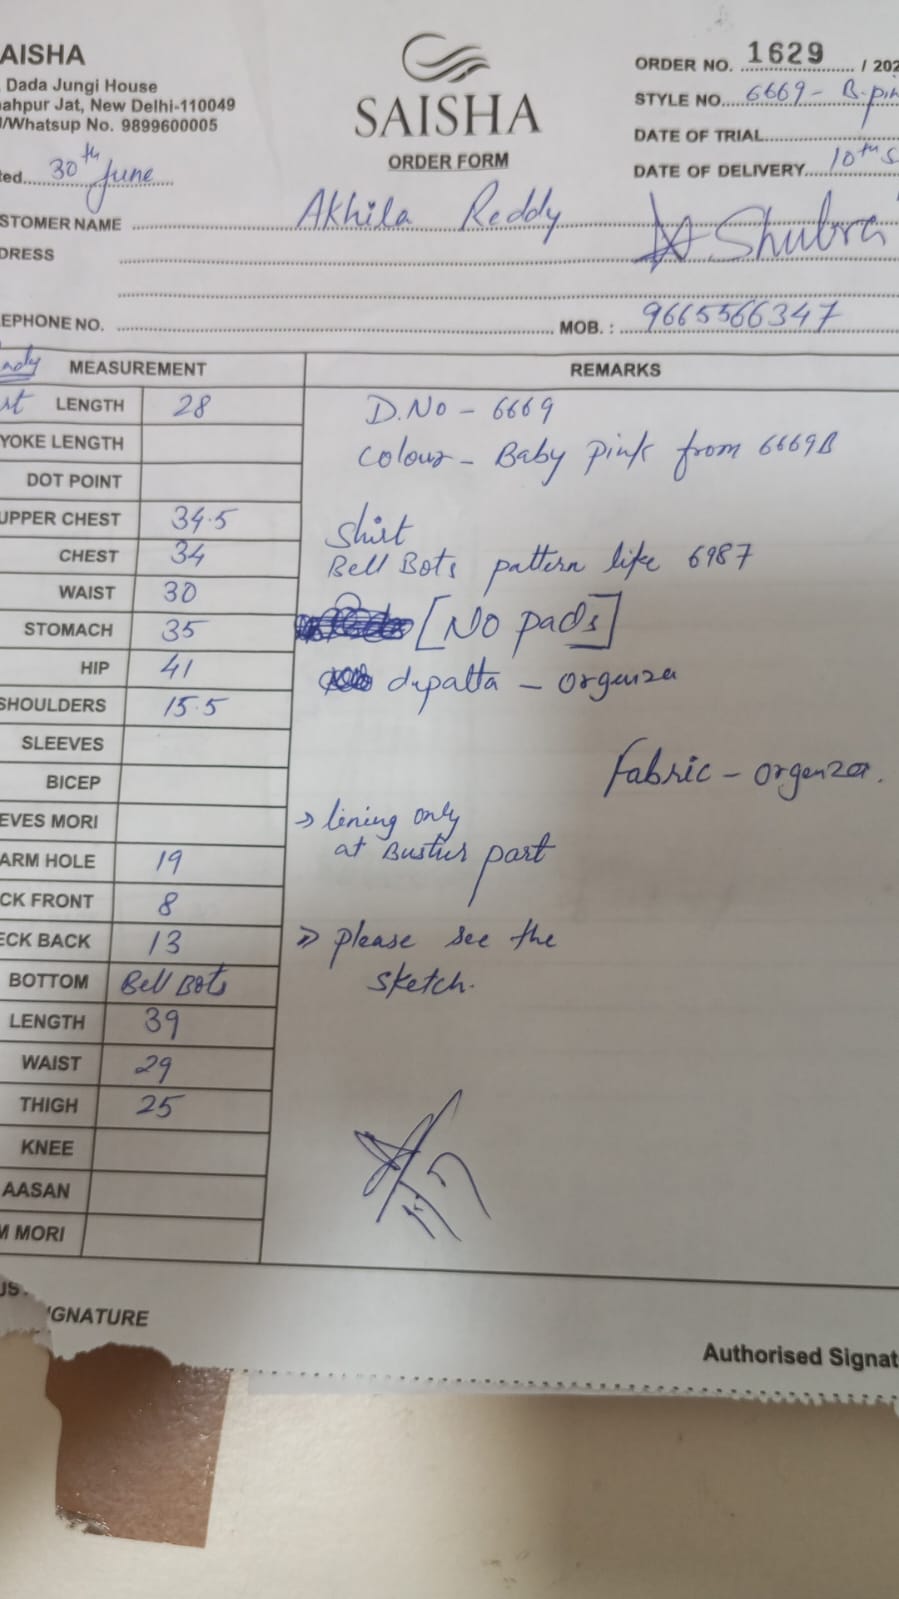 AISHA
Dada Jungi House
ahpur Jat, New Delhi-110049
l/Whatsup No. 9899600005
SAISHA
ORDER FORM
ORDER NO. 1629 / 202
STYLE NO. 6669- B.pin
DATE OF TRIAL
DATE OF DELIVERY 10th S
ted 30th June
STOMER NAME Akhila Reddy
Shubra
DRESS
EPHONE NO. MOB. : 9665566347
MEASUREMENT REMARKS
LENGTH 28
D.No - 6669
YOKE LENGTH
colour - Baby pink from 6669B
DOT POINT
UPPER CHEST 34.5
Shirt
CHEST 34
Bell Bots pattern like 6987
WAIST 30
STOMACH 35
[No pads]
HIP 41
dupatta - organza
SHOULDERS 15.5
SLEEVES
Fabric - organza.
BICEP
EVES MORI
→ lining only
at Bustier part
ARM HOLE 19
CK FRONT 8
ECK BACK 13
⇒ please see the
sketch.
BOTTOM Bell Bots
LENGTH 39
WAIST 29
THIGH 25
KNEE
AASAN
M MORI
US
IGNATURE
Authorised Signat